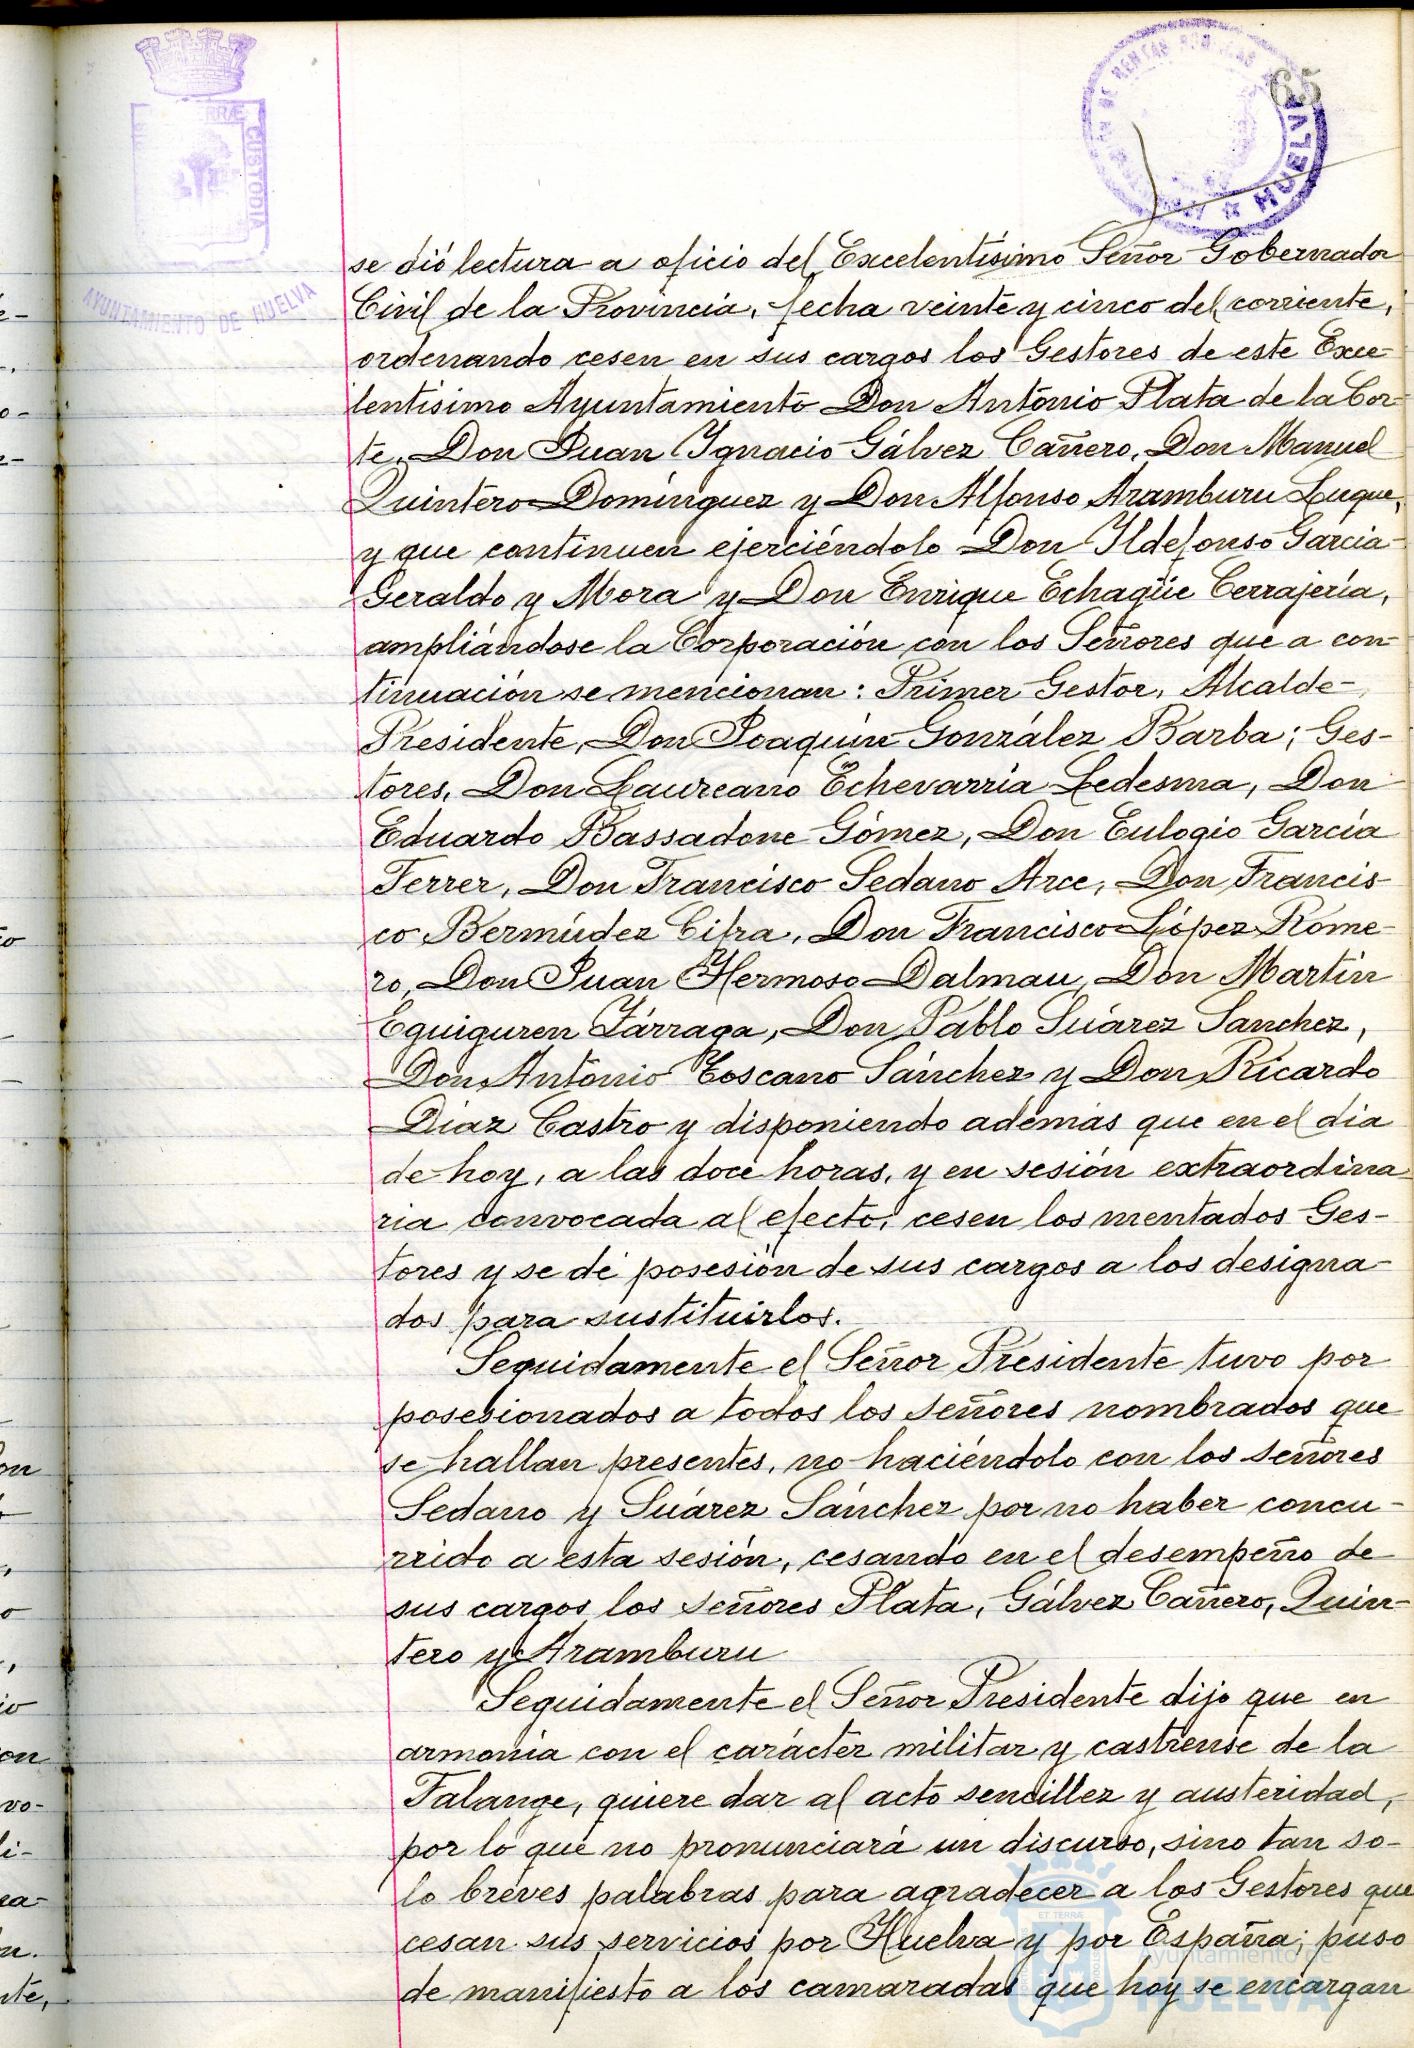 65
HUELVA
TERRÆ CUSTODIA
AYUNTAMIENTO DE HUELVA
se dió lectura a oficio del Excelentísimo Señor Gobernador
Civil de la Provincia, fecha veinte y cinco del corriente,
ordenando cesen en sus cargos los Gestores de este Exce-
lentísimo Ayuntamiento Don Antonio Plata de la Cor-
te, Don Juan Ygnacio Gálvez Cañero, Don Manuel
Quintero Domínguez y Don Alfonso Aramburu Luque,
y que continuen ejerciéndolo Don Yldefonso García
Geraldo y Mora y Don Enrique Echagüe Cerrajería,
ampliándose la Corporación con los Señores que a con-
tinuación se mencionan: Primer Gestor, Alcalde-
Presidente, Don Joaquín González Barba; Ges-
tores, Don Laureano Echevarría Ledesma, Don
Eduardo Bassadone Gómez, Don Eulogio García
Ferrer, Don Francisco Sedano Arce, Don Francis-
co Bermúdez Cifra, Don Francisco López Rome-
ro, Don Juan Hermoso Dalmau, Don Martín
Eguiguren Zárraga, Don Pablo Suárez Sanchez,
Don Antonio Toscano Sánchez y Don Ricardo
Díaz Castro y disponiendo además que en el día
de hoy, a las doce horas, y en sesión extraordina-
ria convocada al efecto, cesen los mentados Ges-
tores y se dé posesión de sus cargos a los designa-
dos para sustituirlos.
Seguidamente el Señor Presidente tuvo por
posesionados a todos los señores nombrados que
se hallan presentes, no haciéndolo con los señores
Sedano y Suárez Sánchez por no haber concu-
rrido a esta sesión, cesando en el desempeño de
sus cargos los señores Plata, Gálvez Cañero, Quin-
tero y Aramburu
Seguidamente el Señor Presidente dijo que en
armonía con el carácter militar y castrense de la
Falange, quiere dar al acto sencillez y austeridad,
por lo que no pronunciará un discurso, sino tan so-
lo breves palabras para agradecer a los Gestores que
cesan sus servicios por Huelva y por España; puso
de manifiesto a los camaradas que hoy se encargan
Ayuntamiento de
HUELVA